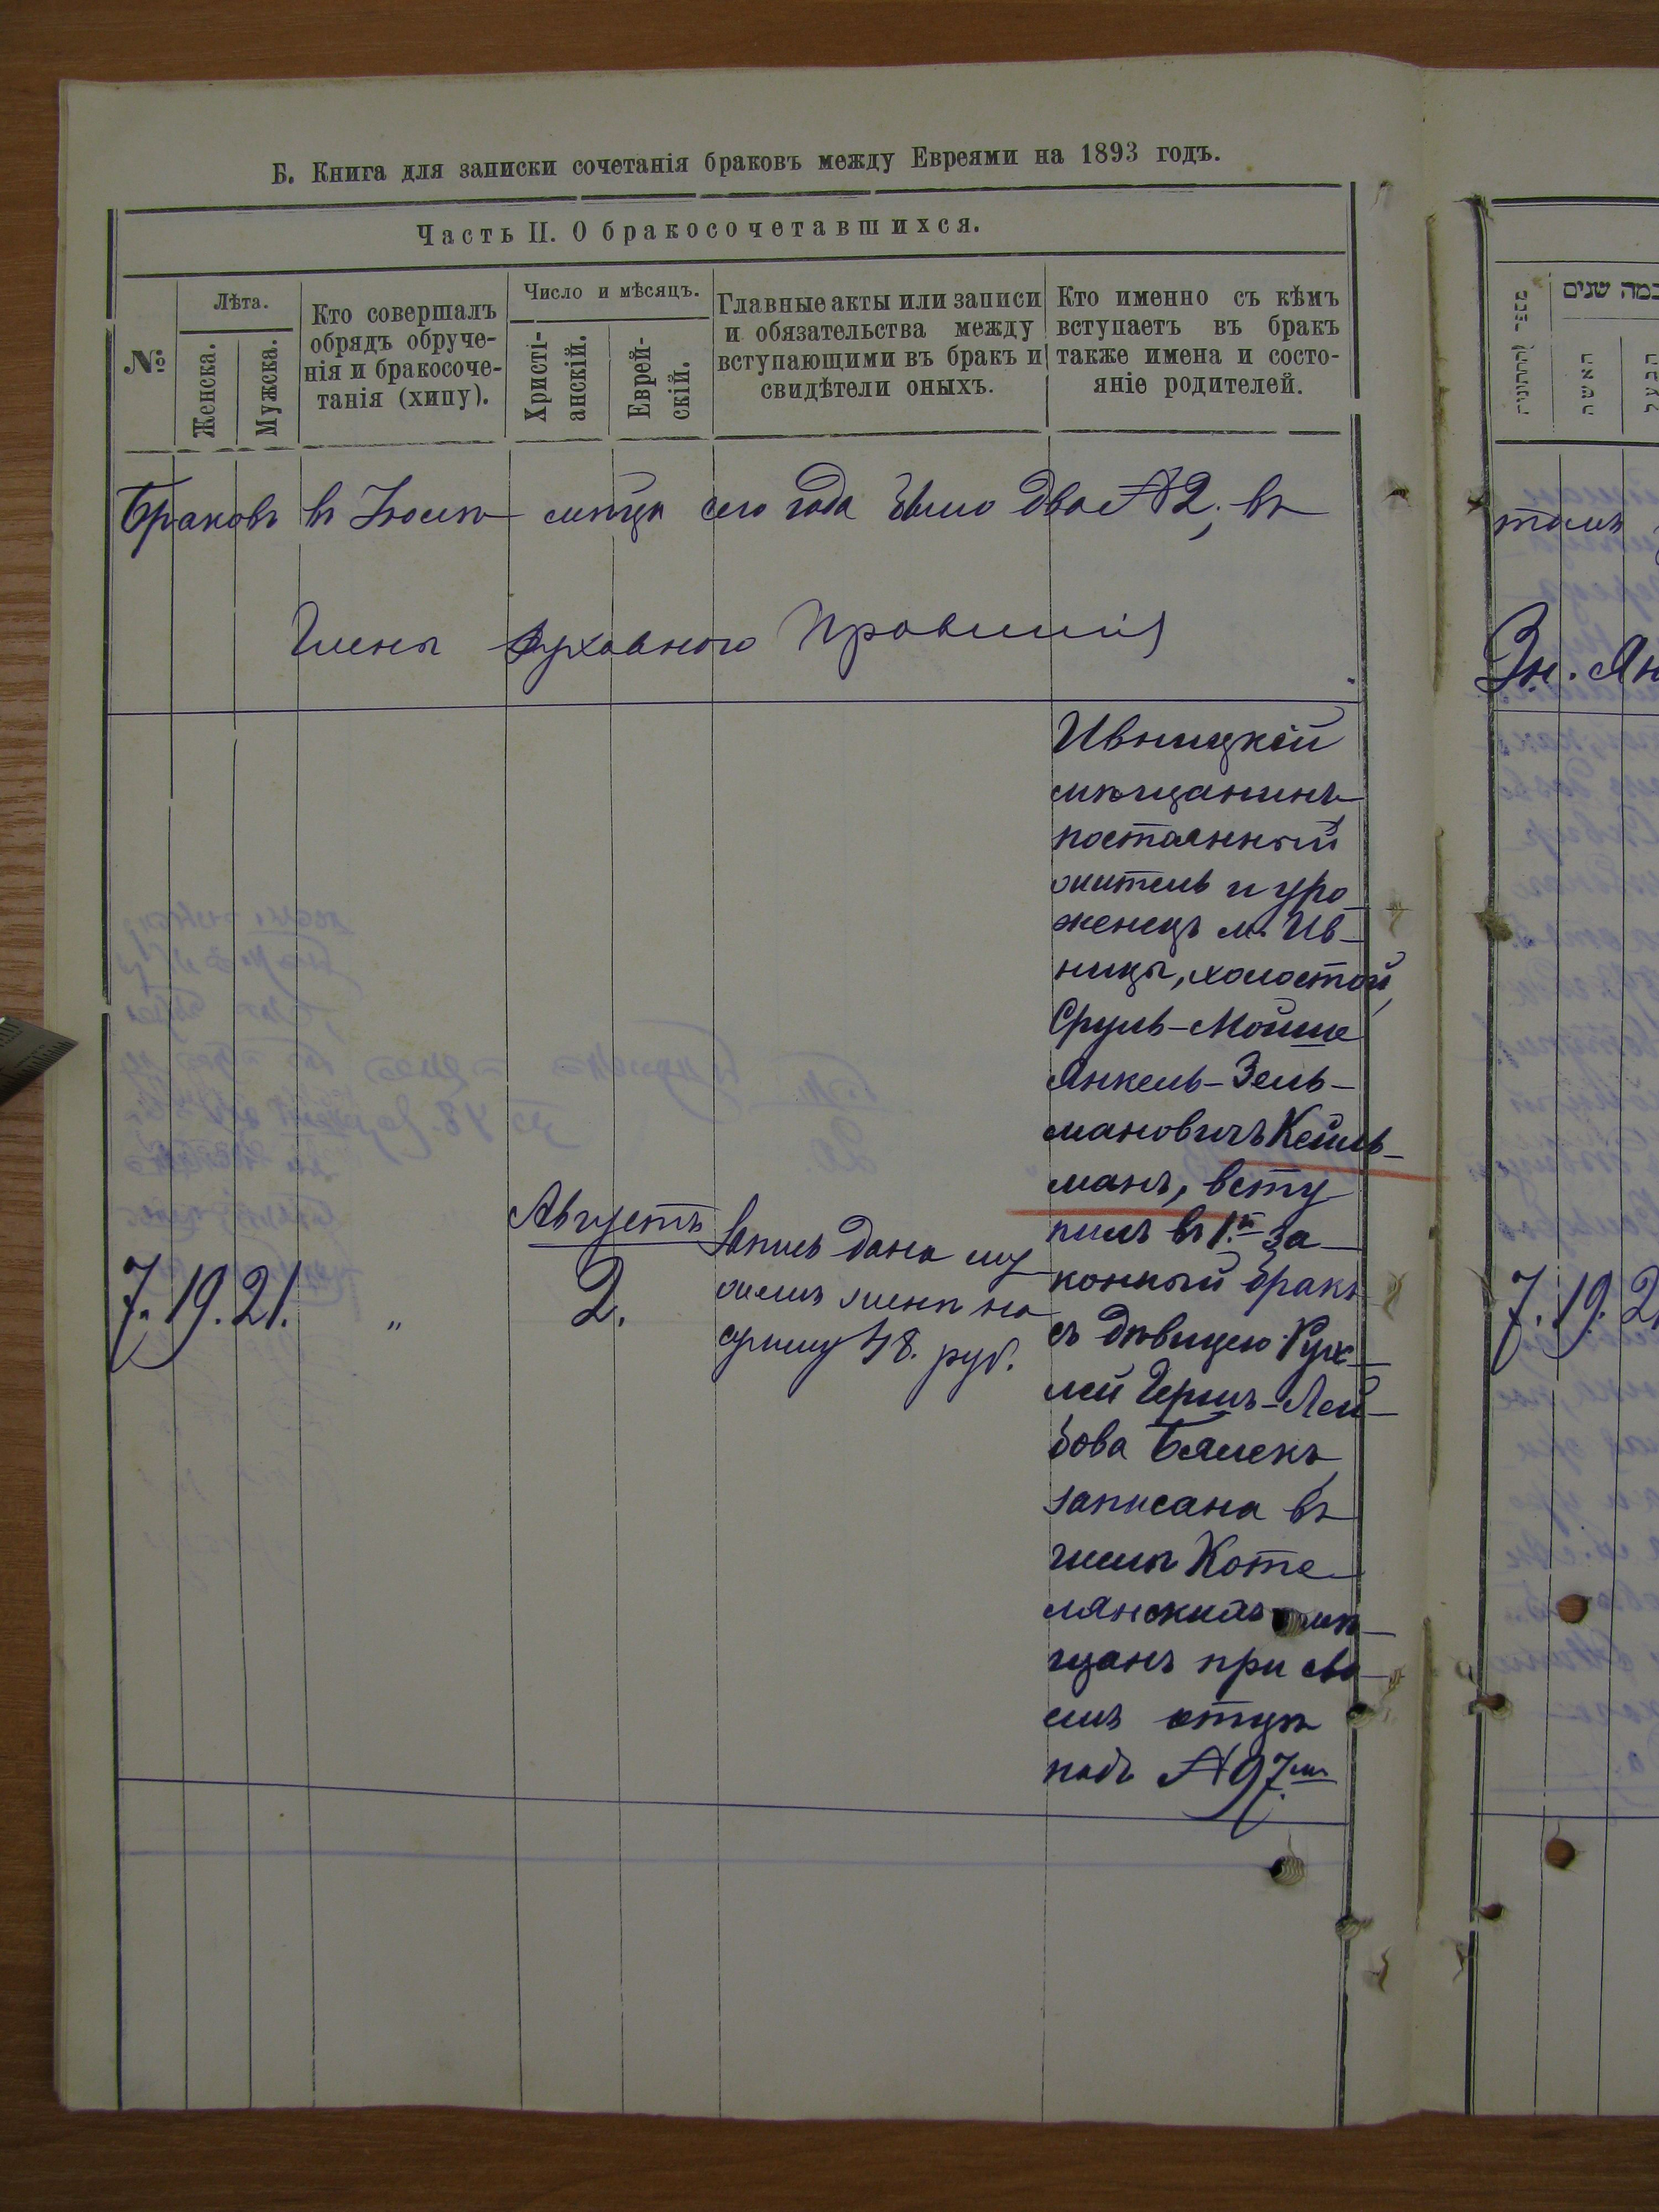 Б. Книга для записки сочетанія браковъ между Евреями на 1893 годъ.
Часть II. О бракосочетавшихся.
№
Лѣта.
Женска.
Мужска.
Кто совершалъ
обрядъ обруче-
нія и бракосоче-
танія (хипу).
Число и мѣсяцъ.
Христі-
анскій.
Еврей-
скій.
Главные акты или записи
и обязательства между
вступающими въ бракъ и
свидѣтели оныхъ.
Кто именно съ кѣмъ
вступаетъ въ бракъ
также имена и состо-
яніе родителей.
Браковъ въ мѣсяцѣ сего года было два №2, въ
Члены Духовного Правленія
7. 19. 21. "
Августъ
2.
Запись дана му
жемъ женѣ на
сумму 48. руб.
Ивницкій
мѣщанинъ
постоянный
житель и уро
женецъ м. Ив-
ницы, холостой,
Сруль-Мошко
Янкель-Зель-
мановичъ Кельм
манъ, всту
пилъ въ 1.й за-
конный бракъ
съ дѣвицею Рух-
лей Герш-Лей-
бова
записана въ
числѣ Коте
лянскихъ мѣ-
щанъ при сво-
емъ отцѣ
подъ №97.мъ
כמה שנים
האשה
томъ
Зн. Ян
7. 19. 2